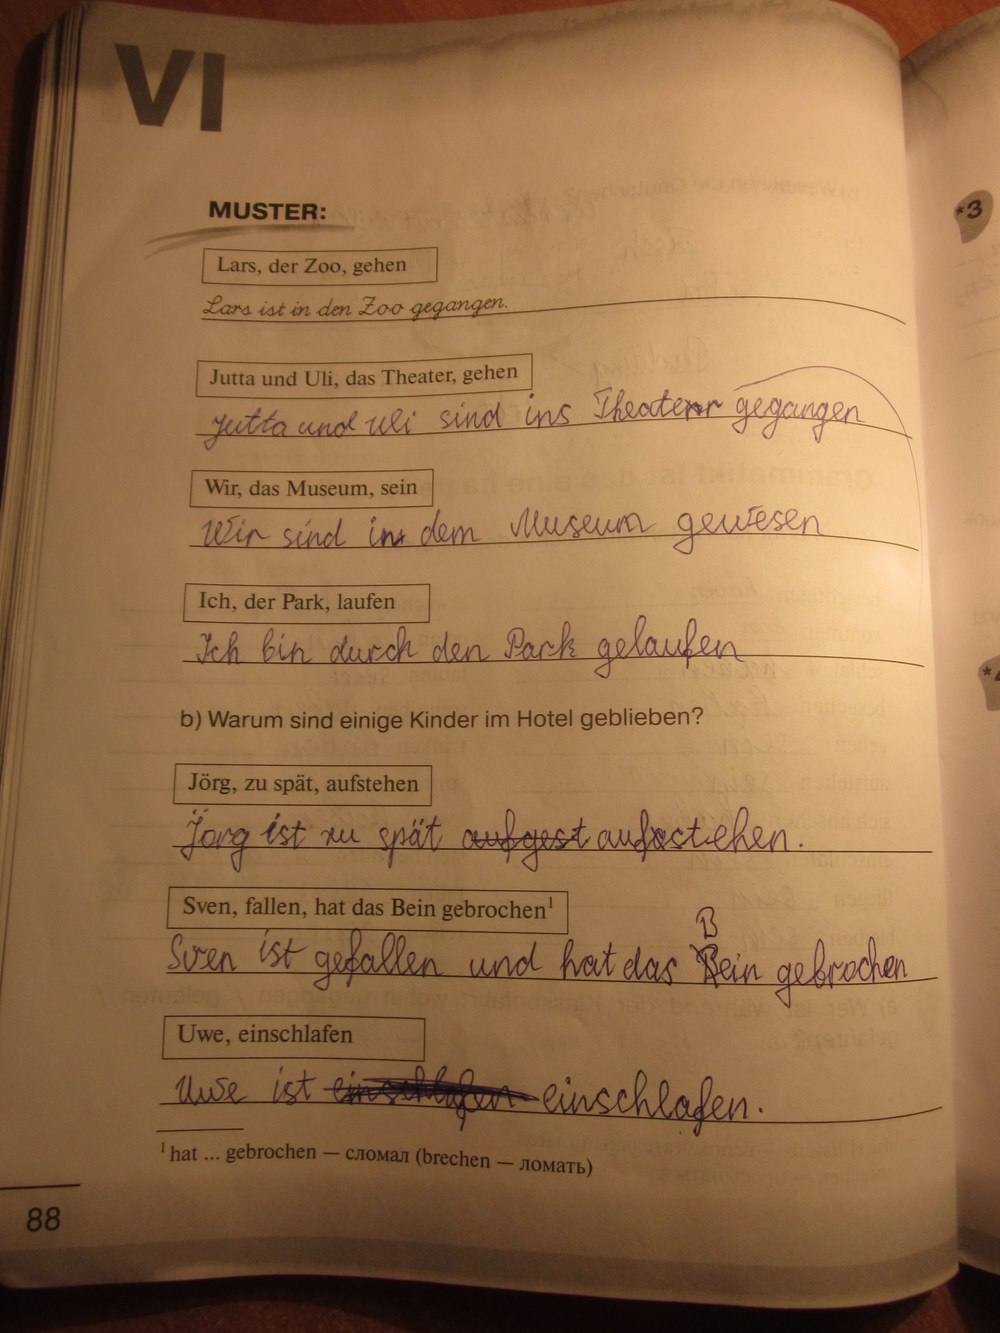 VI
MUSTER:
Lars, der Zoo, gehen
Lars ist in den Zoo gegangen.
Jutta und Uli, das Theater, gehen
Jutta und Uli sind ins Theater gegangen
Wir, das Museum, sein
Wir sind in dem Museum gewesen
Ich, der Park, laufen
Ich bin durch den Park gelaufen
b) Warum sind einige Kinder im Hotel geblieben?
Jörg, zu spät, aufstehen
Jörg ist zu spät aufgest aufstehen.
Sven, fallen, hat das Bein gebrochen¹
Sven ist gefallen und hat das Bein gebrochen
Uwe, einschlafen
Uwe ist einschlafen einschlafen.
¹ hat ... gebrochen — сломал (brechen — ломать)
88
*3